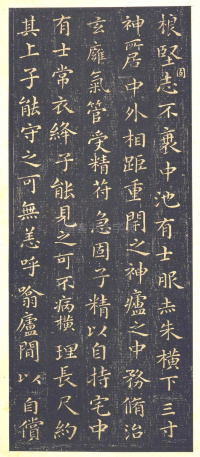 根堅志不衰中池有士服赤朱橫下三寸
固
神所居中外相距重閉之神廬之中務脩治
玄廱氣管受精符急固子精以自持宅中
有士常衣絳子能見之可不病橫理長尺約
其上子能守之可無恙呼噏廬間以自償